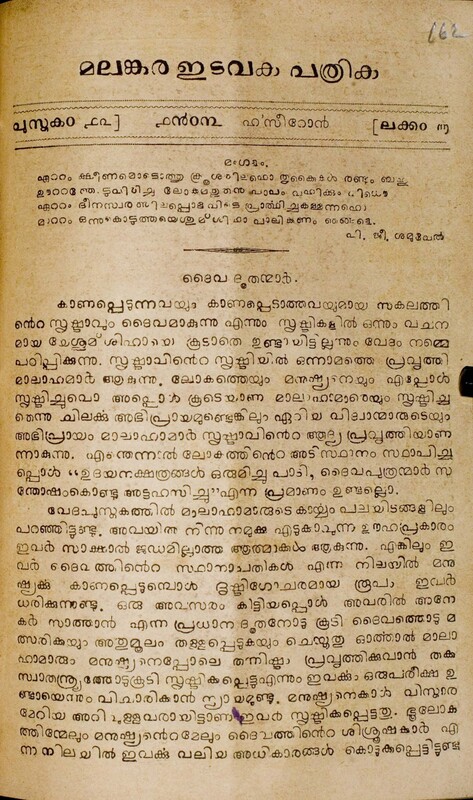 162
മലങ്കര ഇടവക പത്രിക
പുസ്തകം ൧൨] ൧൯൦൩ ഹ്സീറോൻ [ലക്കം ൬
മംഗളം.
പി. ജി. ശമുവേൽ
ദൈവ ദൂതന്മാർ.
കാണപ്പെടുന്നവയും കാണപ്പെടാത്തവയുമായ സകലത്തി
ൻറെ സൃഷ്ടാവും ദൈവമാകുന്നു എന്നും സൃഷ്ടികളിൽ ഒന്നും വചന
മായ യേശുമ്ശിഹായെ കൂടാതെ ഉണ്ടായിട്ടില്ലന്നും വേദം നമ്മെ
പഠിപ്പിക്കുന്നു. സൃഷ്ടാവിൻറെ സൃഷ്ടിയിൽ ഒന്നാമത്തെ പ്രവൃത്തി
മാലാഹമാർ ആകുന്നു. ലോകത്തെയും മനുഷ്യനെയും എപ്പോൾ
സൃഷ്ടിച്ചുവൊ അപ്പൊൾ കൂടെയാണ മാലാഹാമാരെയും സൃഷ്ടിച്ച
തെന്നു ചിലൎക്കു അഭിപ്രായമുണ്ടെങ്കിലും ഏറിയ വിദ്വാന്മാരുടെയും
അഭിപ്രായം മാലാഹാമാർ സൃഷ്ടാവിൻറെ ആദ്യ പ്രവൃത്തിയാണ
ന്നാകുന്നു. എന്തെന്നാൽ ലോകത്തിൻറെ അടിസ്ഥാനം സ്ഥാപിച്ച
പ്പൊൾ "ഉദയനക്ഷത്രങ്ങൾ ഒരുമിച്ചു പാടി, ദൈവപുത്രന്മാർ സ
ന്തോഷംകൊണ്ടു അട്ടഹസിച്ചു" എന്ന പ്രമാണം ഉണ്ടല്ലൊ.
വേദപുസ്തകത്തിൽ മാലാഹാമാരുടെ കാൎയ്യം പലയിടങ്ങളിലും
പറഞ്ഞിട്ടുണ്ടു. അവയിൽ നിന്നു നമുക്കു എടുക്കാവുന്ന ഊഹപ്രകാരം
ഇവർ സാക്ഷാൽ ജഡമില്ലാത്ത ആത്മാക്കൾ ആകുന്നു. എങ്കിലും ഇ
വർ ദൈവത്തിൻറെ സ്ഥാനാപതികൾ എന്ന നിലയിൽ മനു
ഷ്യൎക്കു കാണപ്പെടുമ്പൊൾ ദൃഷ്ടിഗോചരമായ രൂപം ഇവർ
ധരിക്കുന്നുണ്ടു. ഒരു അവസരം കിട്ടിയപ്പൊൾ അവരിൽ അനേ
കർ സാത്താൻ എന്ന പ്രധാന ദൂതനോടു കൂടി ദൈവത്തൊടു മ
ത്സരിക്കയും അതുമൂലം തള്ളപ്പെടുകയും ചെയ്തതു ഓൎത്താൽ മാലാ
ഹാമാരും മനുഷ്യനെപ്പോലെ തന്നിഷ്ടം പ്രവൃത്തിക്കുവാൻ തക്ക
സ്വാതന്ത്ര്യത്തോടുകൂടി സൃഷ്ടിക്കപ്പെട്ടഎന്നും ഇവൎക്കും ഒരുപരീക്ഷ ഉ
ണ്ടായെന്നും വിചാരിക്കാൻ ന്യായമുണ്ടു. മനുഷ്യനെകാൾ വിസ്താര
മേറിയ അറിവുള്ളവരായിട്ടാണ ഇവർ സൃഷ്ടിക്കപ്പെട്ടതു. ഭൂലോക
ത്തിന്മേലും മനുഷ്യൻറെമേലും ദൈവത്തിൻറെ ശിശ്രൂഷകാർ എ
ന്ന നിലയിൽ ഇവൎക്കു വലിയ അധികാരങ്ങൾ കൊടുക്കപ്പെട്ടിട്ടുണ്ടു